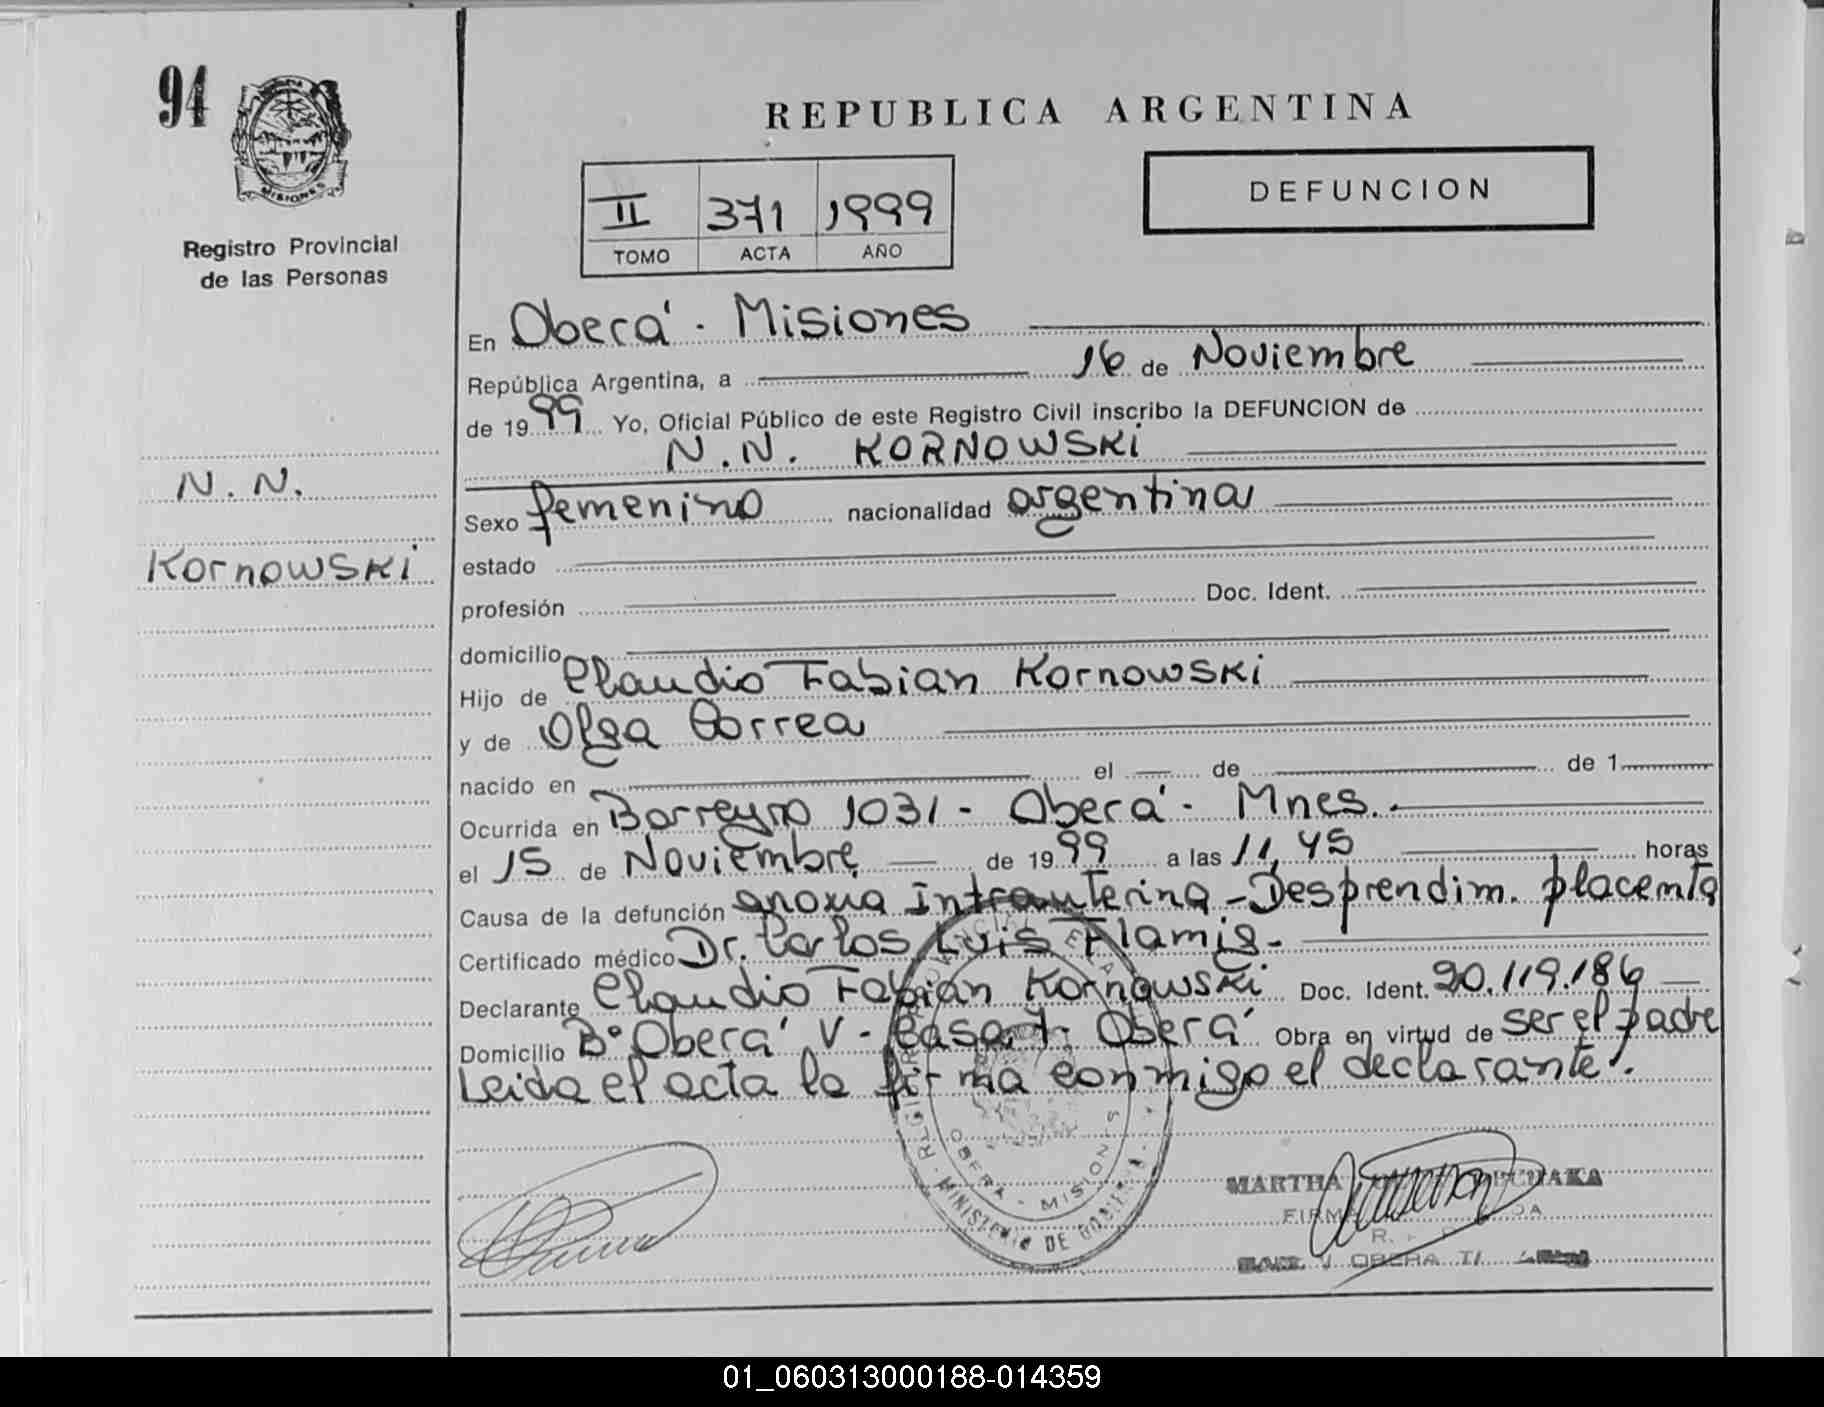 94
MISIONES
Registro Provincial
de las Personas
N. N.
Kornowski
REPUBLICA ARGENTINA
II 371 1999
TOMO ACTA AÑO
DEFUNCION
En Oberá - Misiones
República Argentina, a 16 de Noviembre
de 1999 Yo, Oficial Público de este Registro Civil inscribo la DEFUNCION de
N.N. KORNOWSKI
Sexo femenino nacionalidad argentina
estado
profesión Doc. Ident.
domicilio
Hijo de Claudio Fabian Kornowski
y de Olga Correa
nacido en el de de 1
Ocurrida en Barreyro 1031 - Oberá - Mnes.
el 15 de Noviembre de 1999 a las 11,45 horas
Causa de la defunción anoxia Intrauterina - Desprendim. placenta
Certificado médico Dr. Carlos Luis Flamig.
Declarante Claudio Fabian Kornowski Doc. Ident. 20.119.186
Domicilio B° Oberá V - Casa Oberá Obra en virtud de ser el padre
Leida el acta la firma conmigo el declarante.
OBERA - MISIONES
MINISTERIO DE GOBIERNO
MARTHA
OBERA
01_060313000188-014359